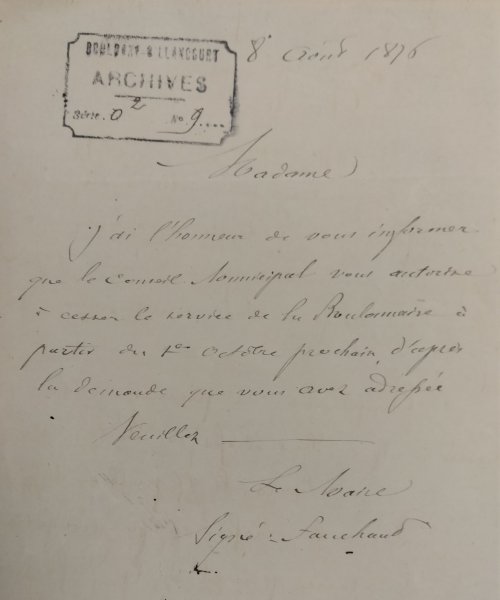 BOULOGNE-BILLANCOURT
ARCHIVES
2
Série. O No 9....
8 Août 1876
Madame
J'ai l'honneur de vous informer
que le Conseil Municipal vous autorise
à cesser le service de la Boulonnaise à
partir du 1er Octobre prochain, d'après
la demande que vous avez adressée
Veuillez
Le Maire
Signé :